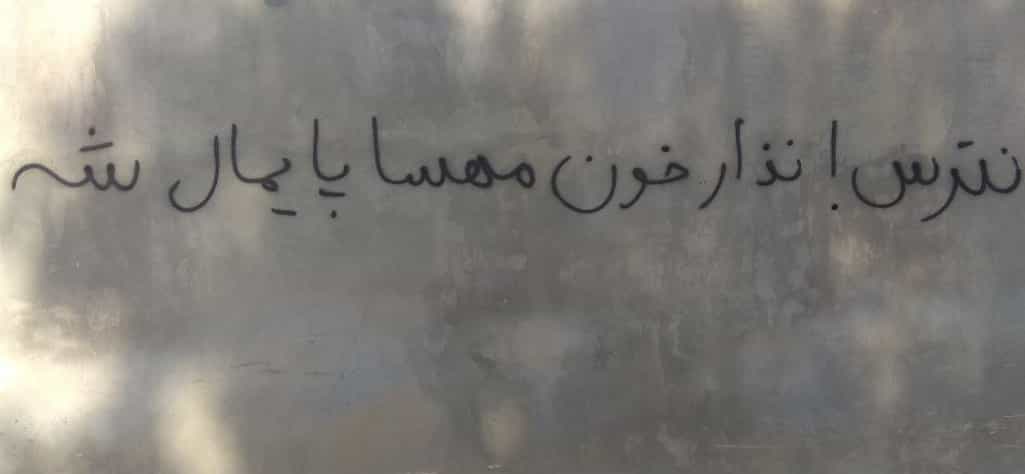 نترس! نذار خون مهسا پایمال شه